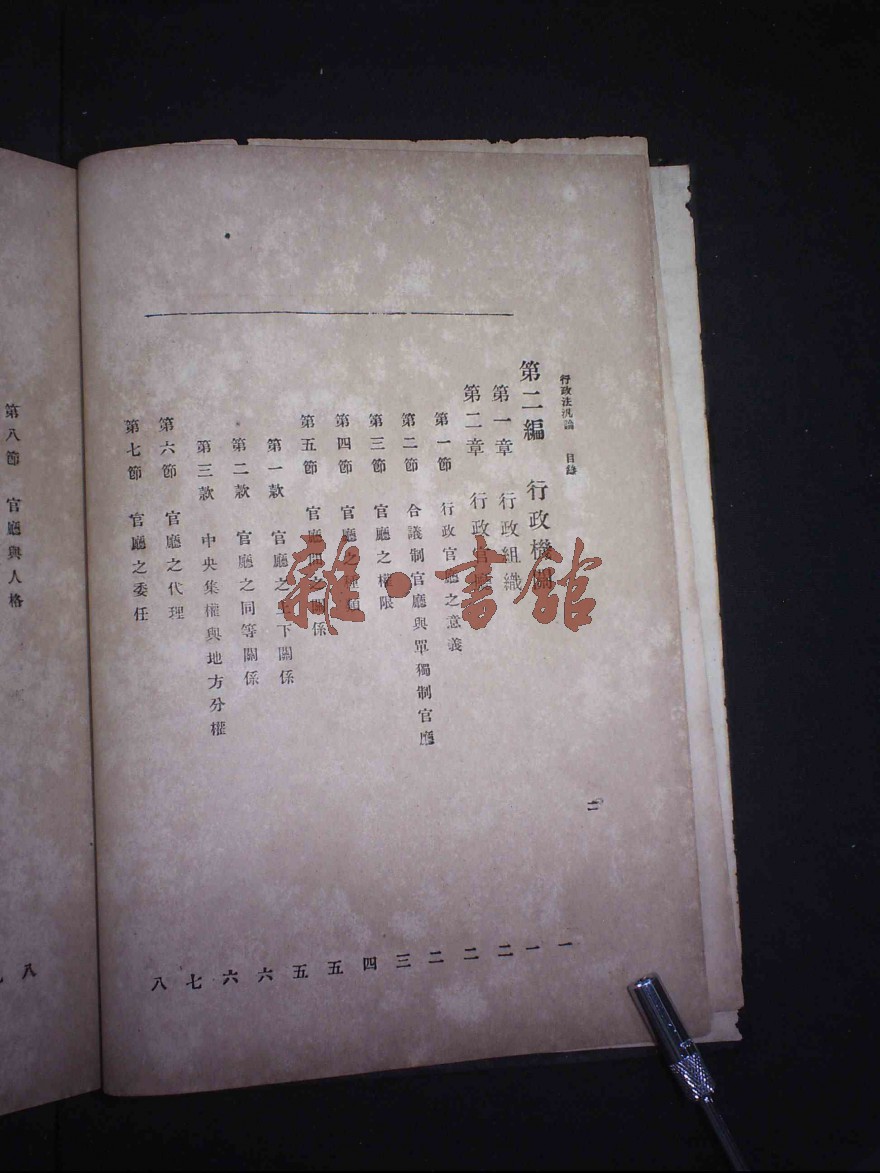 行政法汎論 目錄 二
第二編 行政機關 一
第一章 行政組織 一
第二章 行政官廳 二
第一節 行政官廳之意義 二
第二節 合議制官廳與單獨制官廳 二
第三節 官廳之權限 三
第四節 官廳之種類 四
第五節 官廳間之關係 五
第一款 官廳之上下關係 五
第二款 官廳之同等關係 六
第三款 中央集權與地方分權 六
第六節 官廳之代理 七
第七節 官廳之委任 八
第八節 官廳與人格 八
雜·書館